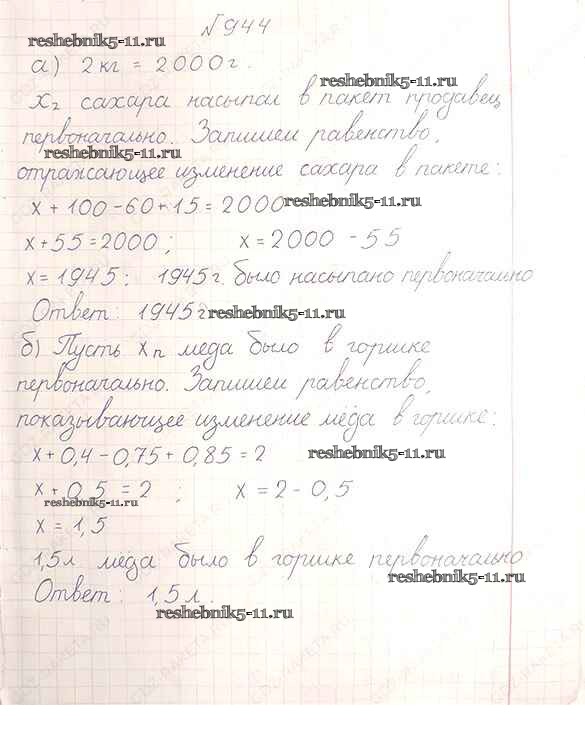 №944
reshebnik5-11.ru
а) 2 кг = 2000 г.
reshebnik5-11.ru
x г сахара насыпал в пакет продавец
первоначально. Запишем равенство,
reshebnik5-11.ru
отражающее изменение сахара в пакете:
x + 100 - 60 + 15 = 2000 reshebnik5-11.ru
x + 55 = 2000 ; x = 2000 - 55
x = 1945 ; 1945 г. было насыпано первоначально
Ответ: 1945 г reshebnik5-11.ru
б) Пусть x л меда было в горшке
первоначально. Запишем равенство,
показывающее изменение мёда в горшке:
x + 0,4 - 0,75 + 0,85 = 2 reshebnik5-11.ru
x + 0,5 = 2 ; x = 2 - 0,5
reshebnik5-11.ru
x = 1,5
1,5 л меда было в горшке первоначально
reshebnik5-11.ru
Ответ: 1,5 л.
reshebnik5-11.ru